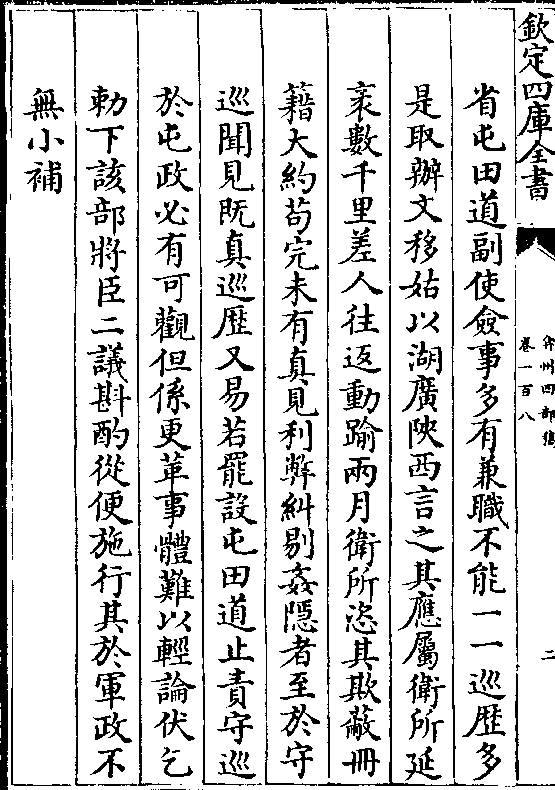 欽定四庫全書
弇州四部稿
卷一百八
二
省屯田道副使僉事多有兼職不能一一巡歴多
是取辦文移姑以湖廣陜西言之其應屬衛所延
袤數千里差人往返動踰兩月衛所恣其欺蔽冊
籍大約茍完未有真見利弊糾剔姦隱者至於守
巡聞見既真巡歴又易若罷設屯田道止責守巡
於屯政必有可觀但係更革事體難以輕論伏乞
勅下該部將臣二議斟酌從便施行其於軍政不
無小補